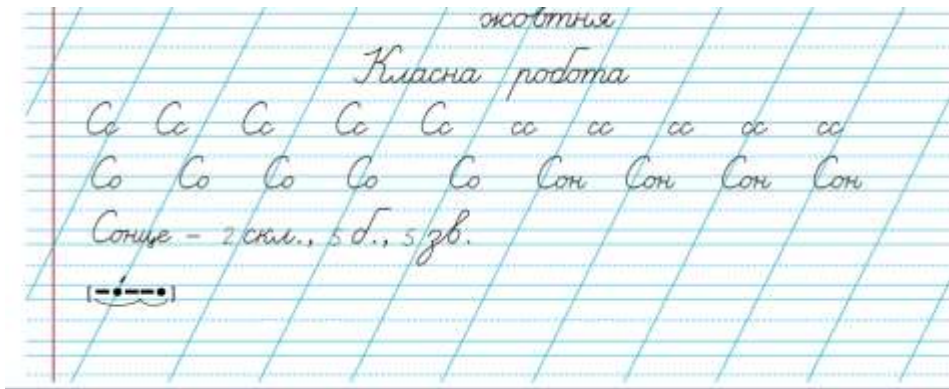 жовтня
Класна робота
Сс Сс Сс Сс Сс сс сс сс сс сс
Со Со Со Со Со Сон Сон Сон Сон
Сонце – 2 скл., 5 б., 5 зв.
[–•́––•]